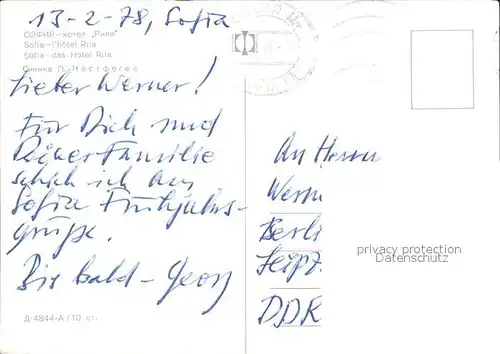 13-2-78, Sofia
СОФИЯ-хотел „Рила“
Sofia-l'hôtel Rila
Sofia-das Hotel Rila
Снимка П. Настфогел
Lieber Werner!
Für Dich und
Deiner Familie
schick ich aus
Sofia Frühjahrs-
grüße.
Bis bald - Georg
Д-4844-А / 10 ст.
An Herrn
Wern
Berli
Leipz.
DDR
privacy protection
Datenschutz